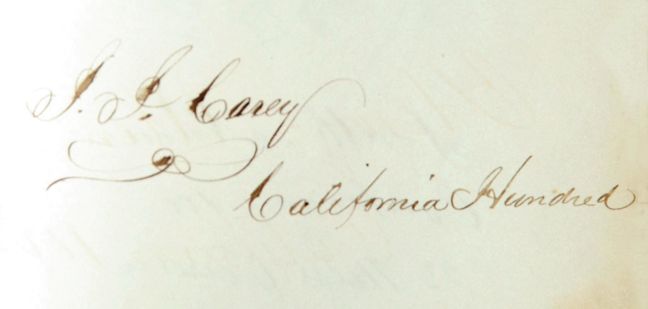 J. J. Carey
California Hundred